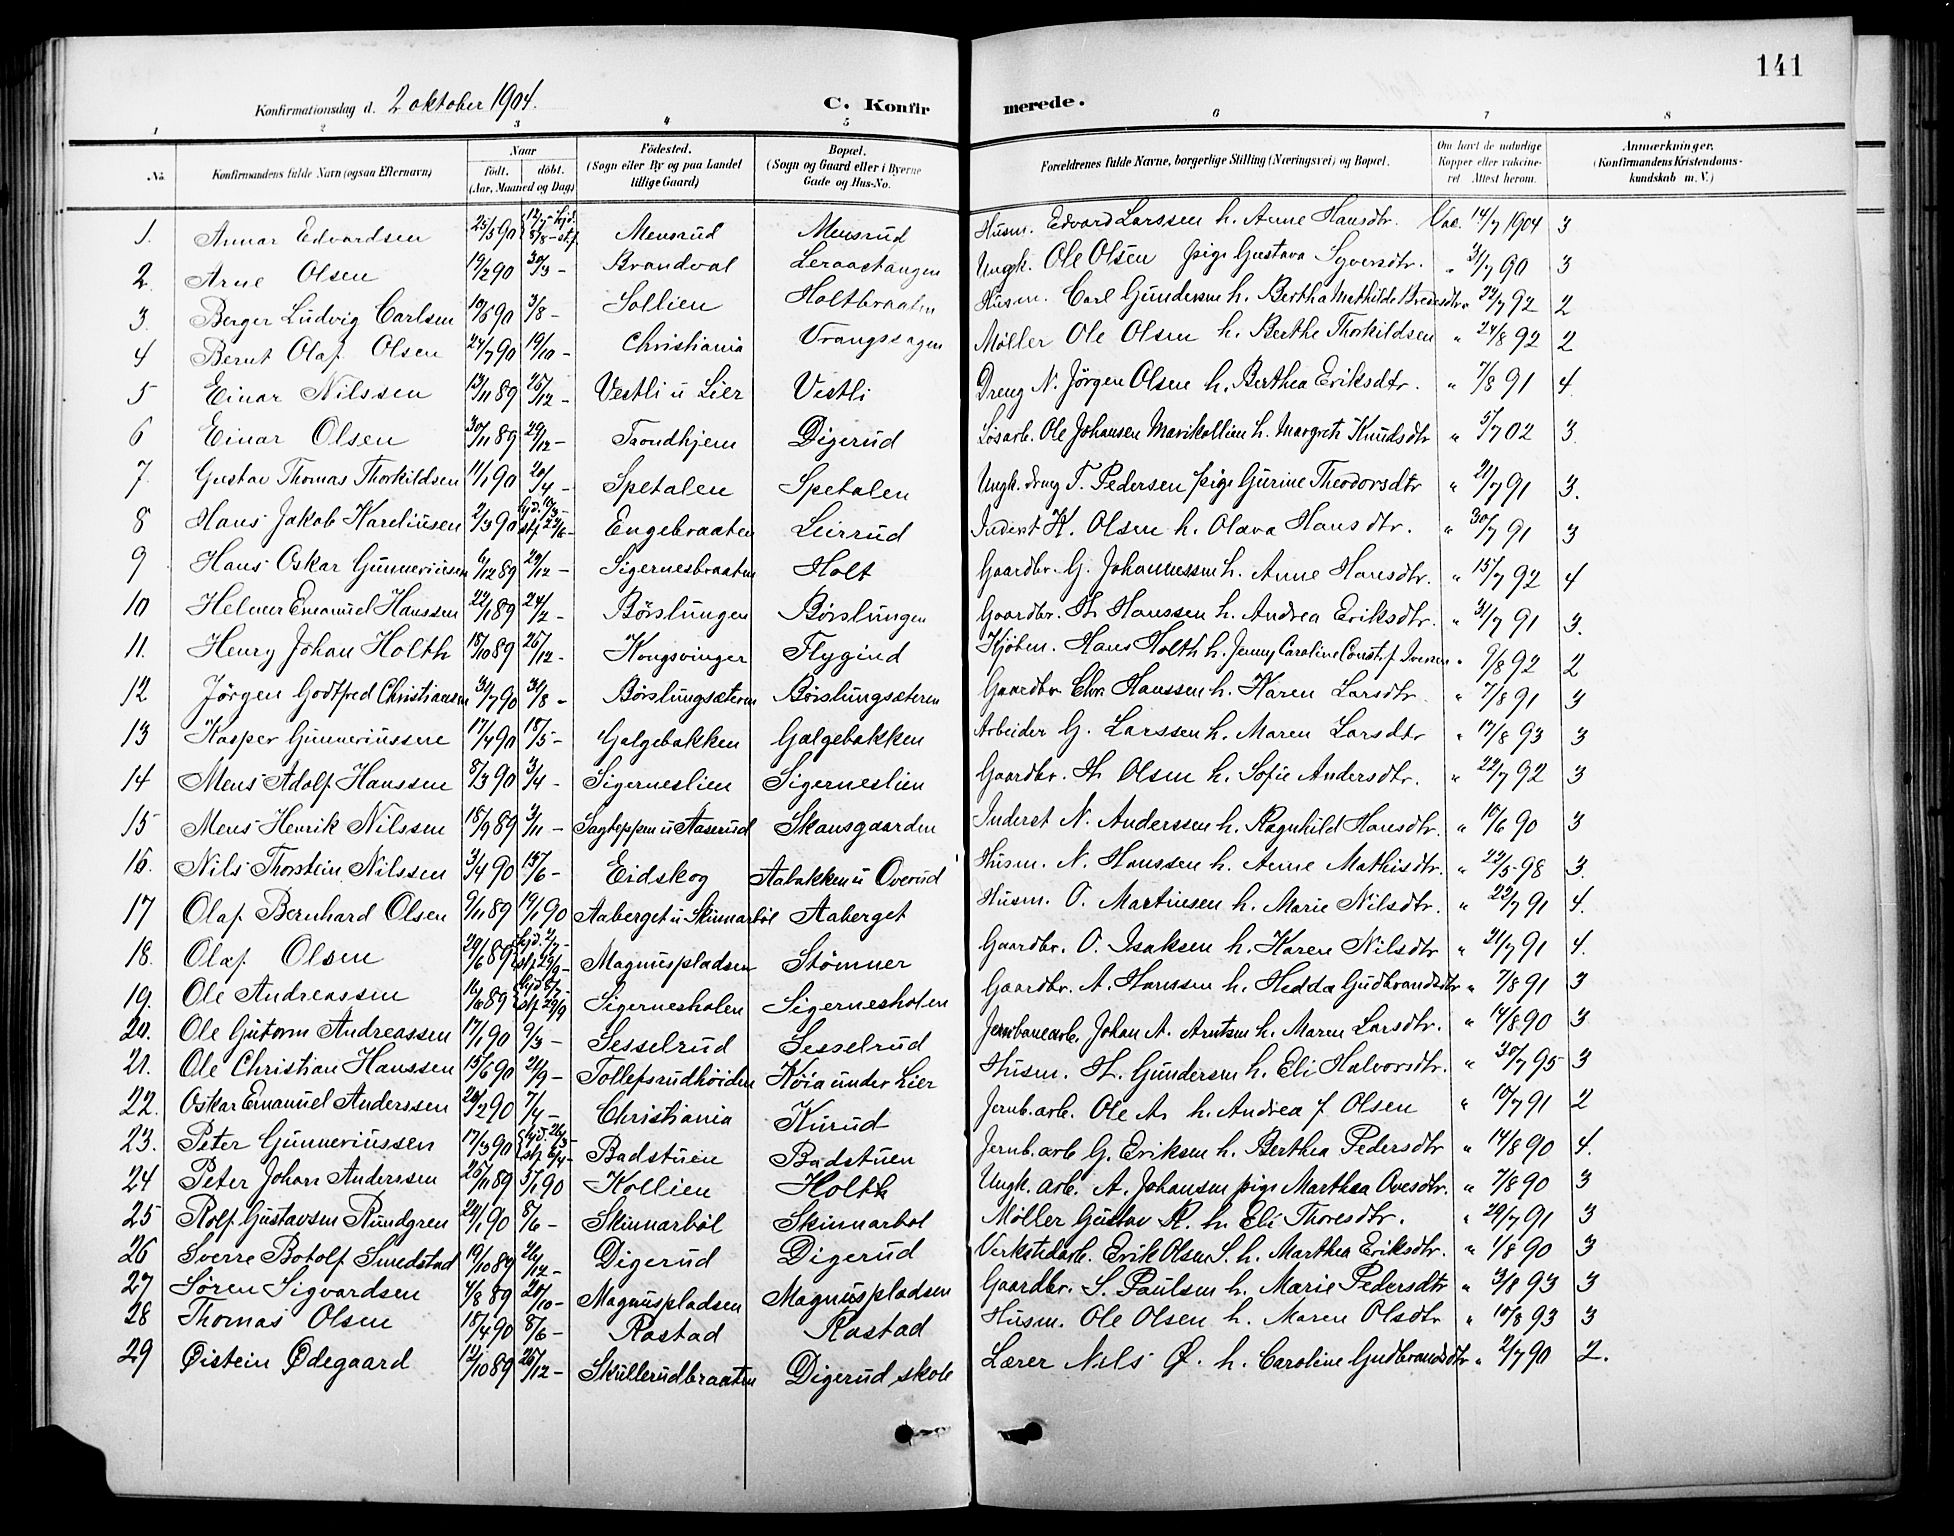 141
Konfirmationsdag d. 2 oktober 1904. C. Konfirmerede.
1 2 3 4 5 6 7 8
No. Konfirmandens fulde Navn (ogsaa Efternavn) Naar født. døbt. (Aar, Maaned og Dag) Födested. (Sogn eller By og paa Landet tillige Gaard) Bopæl. (Sogn og Gaard eller i Byerne Gade og Hus-No. Forældrenes fulde Navne, borgerlige Stilling (Næringsvei) og Bopæl. Om havt de naturlige Kopper eller vaccineret Attest herom. Anmerkninger. (Konfirmandens Kristendomskundskab m. V.)
1. Annar Edvardsen 25/5 90 Mensrud Mensrud Husm. Edvard Larssen h. Anne Hansdtr. Vac. 14/7 1904 3
2. Arne Olsen 19/2 90 30/3 - Brandval Leraastangen Ungk. Ole Olsen pige Gustava Syversdtr. " 31/7 90 3
3. Berger Ludvig Carlsen 10/5 90 3/8 - Sollien Holtbraaten Husm. Carl Gundersen h. Bertha Mathilde " 22/7 92 2
4 Bernt Olaf Olsen 24/7 90 19/10 - Christiania Vrangssagen Møller Ole Olsen h. Berthe Thorkildsen " 24/8 92 2
5 Einar Nilssen 13/11 89 26/12 - Vestli u Lier Vestli Dreng N. Jörgen Olsen h. Berthea Eriksdtr. " 7/8 91 4.
6 Einar Olsen 30/11 89 29/12 - Trondhjem Digerud Løsarb. Ole Johansen Marikollien h. Margrete Knudsdtr " 5/7 02 3.
7. Gustav Thomas Thorkildsen 11/1 90 20/4 - Spetalen Spetalen Ungk. dreng T. Pedersen pige Gurine Theodorsdtr " 21/7 91 3.
8 Hans Jakob Kareliusen 2/3 90 Engebraaten Leirrud Inderst K. Olsen h. Olava Hansdtr. " 30/7 91 3
9 Hans Oskar Gunneriusen 6/12 89 29/12 - Sigernesbraaten Holt Gaardbr. G. Johannessen h. Anne Hansdtr. " 15/7 92 4
10 Helmer Emanuel Hanssen 22/1 89 24/2 - Börslungen Börslungen Gaardbr. H. Hanssen h. Andrea Eriksdtr. " 31/7 91 3.
11. Henry Johan Holth 18/10 89 26/12 - Kongsvinger Flygind Kjöbm. Hans Holth h. Jenny Caroline Const. f. Iversen " 9/8 92 2
12 Jörgen Godtfred Christiansen 31/7 90 31/8 - Börslungsæteren Börslungsæteren Gaardbr Chr. Hanssen h. Karen Larsdtr " 7/8 91 3
13 Kasper Gunneriussen 17/4 90 18/5 - Galgebakken Galgebakken Arbeider G. Larssen h. Maren Larsdtr " 17/8 93 3
14 Mens Adolf Hanssen 8/3 90 3/4 - Sigerneslien Sigerneslien Gaardbr. H. Olsen h. Sofie Andersdtr. " 22/7 92 3
15 Mens Henrik Nilssen 18/9 89 3/11 - Sagteppen u Aaserud Skansgaarden Inderst N. Anderssen h. Ragnhild Hansdtr. " 10/6 90 3
16. Nils Thorstein Nilssen 3/4 90 15/6 - Eidskog Aabakken u Overud Husm. N. Hanssen h. Anne Mathisdtr. " 22/5 98 3.
17 Olaf Bernhard Olsen 9/11 89 19/1 90 Aaberget u Skinnarböl Aaberget Husm. O. Martinesen h. Marie Nilsdtr. " 22/7 91 4.
18. Olaf Olsen 20/6 89 Magnuspladsen Stömner Gaardbr. O. Isaksen h. Karen Nilsdtr " 21/7 91 4.
19. Ole Andreassen Sigernesholen Sigernesholen Gaardbr. A. Hanssen h. Hedda Gudbrandsdtr " 7/8 91 3
20. Ole Gutorm Andreassen 17/1 90 9/3 - Sesselrud Sesselrud Jernbanearb. Johan A. Arntsen h. Maren Larsdtr. " 14/8 90 3
21. Ole Christian Hanssen 15/6 90 21/9 - Tollefsrudhöiden Köia under Lier Husm. H. Gundersen h. Eli Halvorsdtr. " 30/7 95 3
22. Oskar Emanuel Anderssen 20/2 90 7/4 - Christiania Kurud Jernb.arb. Ole A. h. Andrea f. Olsen " 10/7 91 2
23. Peter Gunneriussen 17/3 90 Badstuen Badstuen Jernb.arb G. Eriksen h. Berthea Pedersdtr " 14/8 90 4.
24 Peter Johan Anderssen 25/11 89 5/1 90 Kollien Holth Ungk. arb. A. Johansen pige Marthea Ovesdtr. " 7/8 90 3
25 Rolf Gustavsen Rundgren 29/1 90 8/6 - Skinnarböl Skinnarbol Møller Gustav R. h. Eli Thoresdtr. " 29/7 91 3
26 Sverre Botolf Smedstad 19/10 89 26/12 - Digerud Digerud Verkstedarb. Erik Olsen S. h. Marthea Eriksdtr. " 1/8 90 3
27 Søren Sigvardsen 4/8 89 20/10 - Magnuspladsen Magnuspladsen Gaardbr. S. Paulsen h. Marie Pedersdtr " 3/8 93 3
28 Thomas Olsen 18/4 90 8/6 - Rastad Rastad Husm. Ole Olsen h. Maren Olsdtr " 10/8 93 3
29 Øistein Ødegaard 12/10 89 26/12 - Skullerudbraaten Digerud skole Lærer Nils Ø. h. Caroline Gudbrandsdtr " 2/7 90 2.